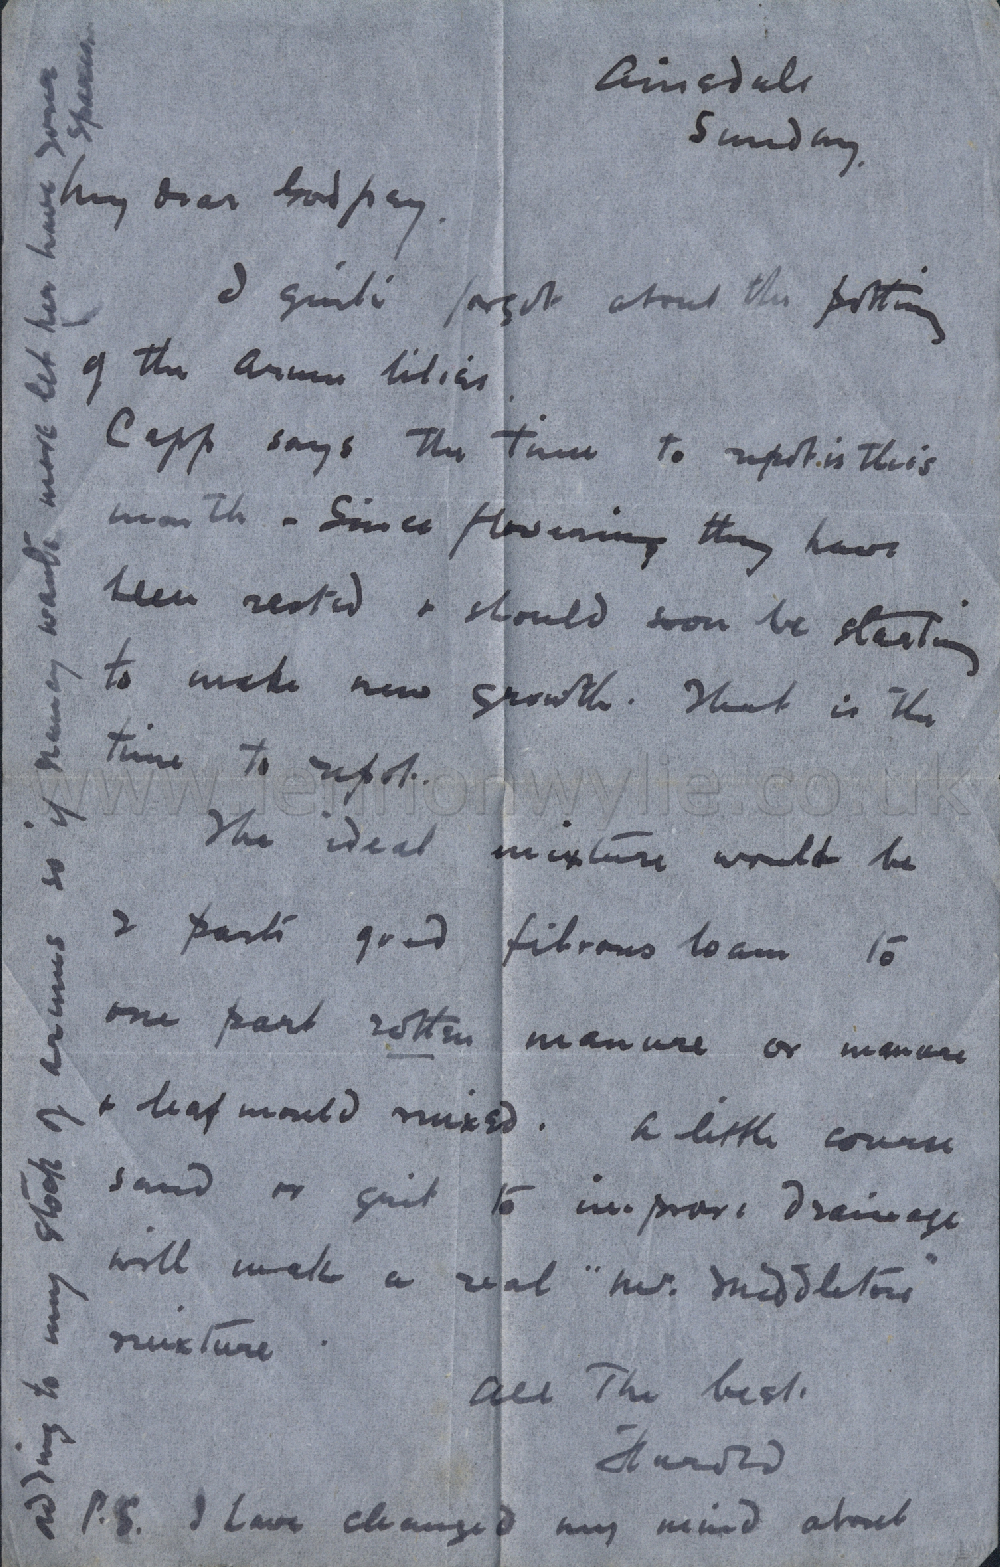 Ainsdale
Sunday.
My dear Godfrey.
I quite forgot about the potting
of the Arum lilies.
Capp says the time to repot is this
month - Since flowering they have
been rested & should soon be starting
to make new growth. That is the
time to repot.
The ideal mixture would be
2 parts good fibrous loam to
one part rotten manure or manure
& leaf mould mixed. A little course
sand or grit to improve drainage
will make a real "Mr. Middleton"
mixture.
All the best.
Harold
P.S. I have changed my mind about
adding to my stock of arums so if wants more let her have your
spares.
www.lennonwylie.co.uk